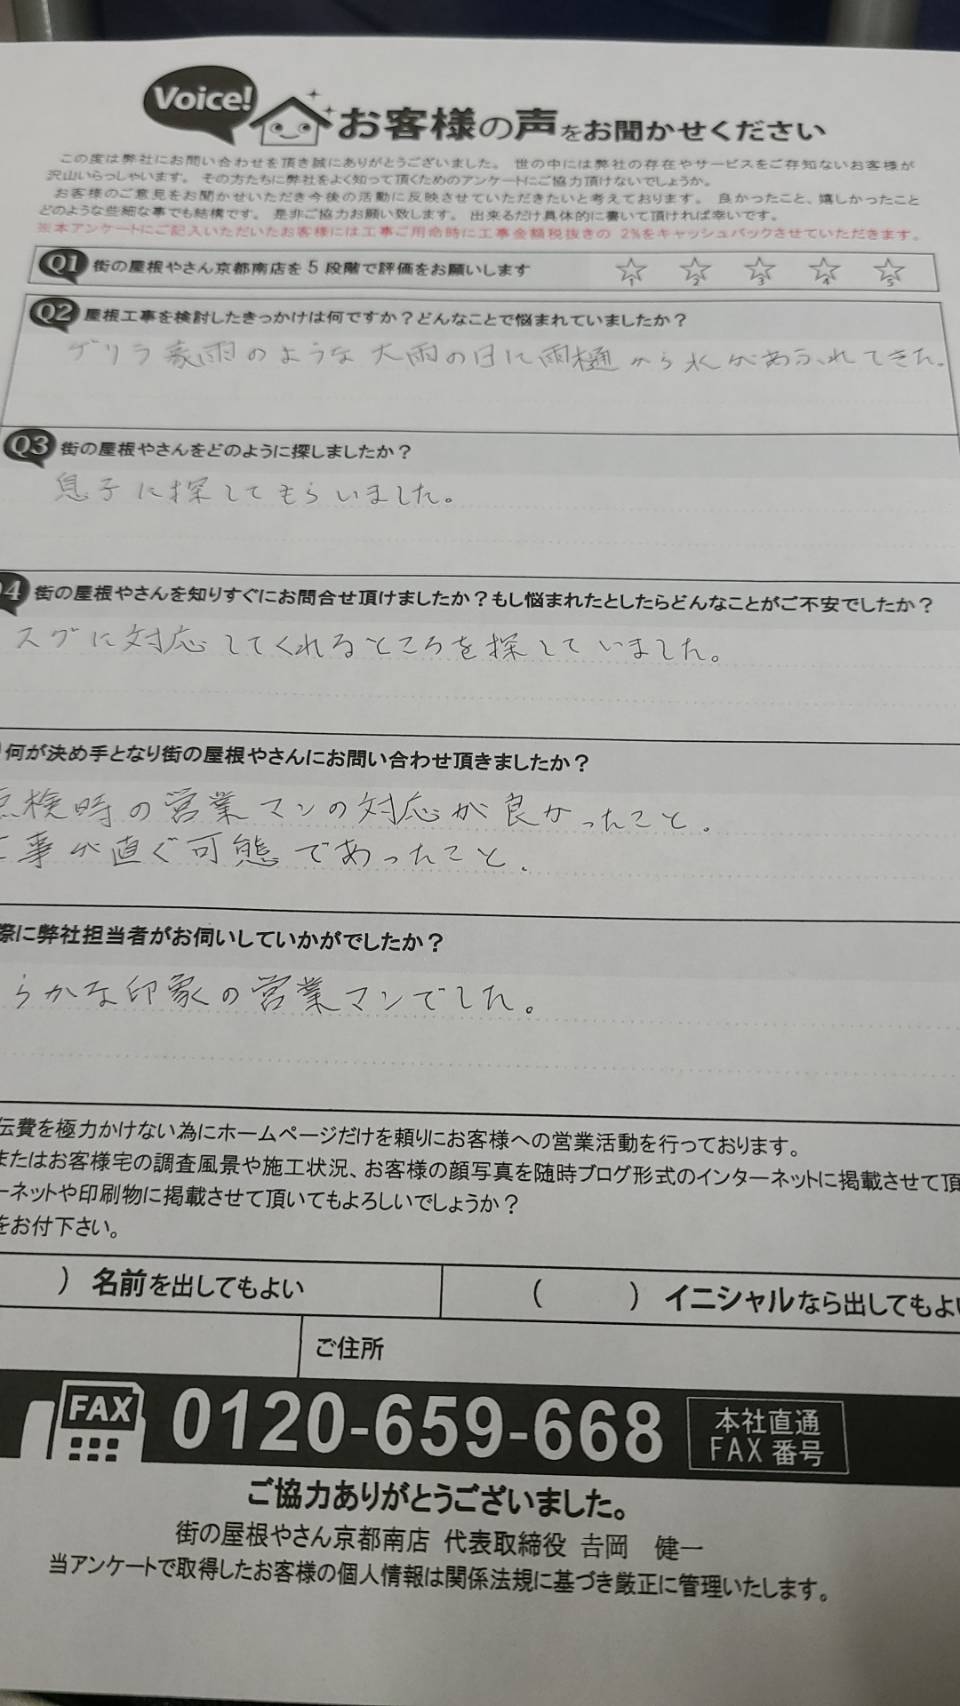 Voice!
お客様の声をお聞かせください
この度は弊社にお問い合わせを頂き誠にありがとうございました。 世の中には弊社の存在やサービスをご存知ないお客様が
沢山いらっしゃいます。 その方たちに弊社をよく知って頂くためのアンケートにご協力頂けないでしょうか。
お客様のご意見をお聞かせいただき今後の活動に反映させていただきたいと考えております。 良かったこと、嬉しかったこと
どのような些細な事でも結構です。 是非ご協力お願い致します。 出来るだけ具体的に書いて頂ければ幸いです。
※本アンケートにご記入いただいたお客様には工事ご用命時に工事金額税抜きの 2%をキャッシュバックさせていただきます。
Q1 街の屋根やさん京都南店を 5 段階で評価をお願いします 1 2 3 4 5
Q2 屋根工事を検討したきっかけは何ですか？どんなことで悩まれていましたか？
ゲリラ豪雨のような大雨の日に雨樋から水があふれてきた。
Q3 街の屋根やさんをどのように探しましたか？
息子に探してもらいました。
4 街の屋根やさんを知りすぐにお問合せ頂けましたか？もし悩まれたとしたらどんなことがご不安でしたか？
スグに対応してくれるところを探していました。
何が決め手となり街の屋根やさんにお問い合わせ頂きましたか？
点検時の営業マンの対応が良かったこと.
事が直ぐ可態であったこと.
際に弊社担当者がお伺いしていかがでしたか？
らかな印象の営業マンでした。
伝費を極力かけない為にホームページだけを頼りにお客様への営業活動を行っております。
またはお客様宅の調査風景や施工状況、お客様の顔写真を随時ブログ形式のインターネットに掲載させて頂
ーネットや印刷物に掲載させて頂いてもよろしいでしょうか？
をお付下さい。
） 名前を出してもよい （ ） イニシャルなら出してもよい
ご住所
FAX 0120-659-668 本社直通
FAX 番号
ご協力ありがとうございました。
街の屋根やさん京都南店 代表取締役 吉岡 健一
当アンケートで取得したお客様の個人情報は関係法規に基づき厳正に管理いたします。